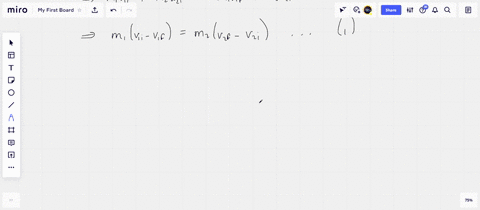 miro My First Board Share
⇒ m₁(v₁ᵢ - v₁f) = m₂(v₂f - v₂ᵢ) ... (1)
75%